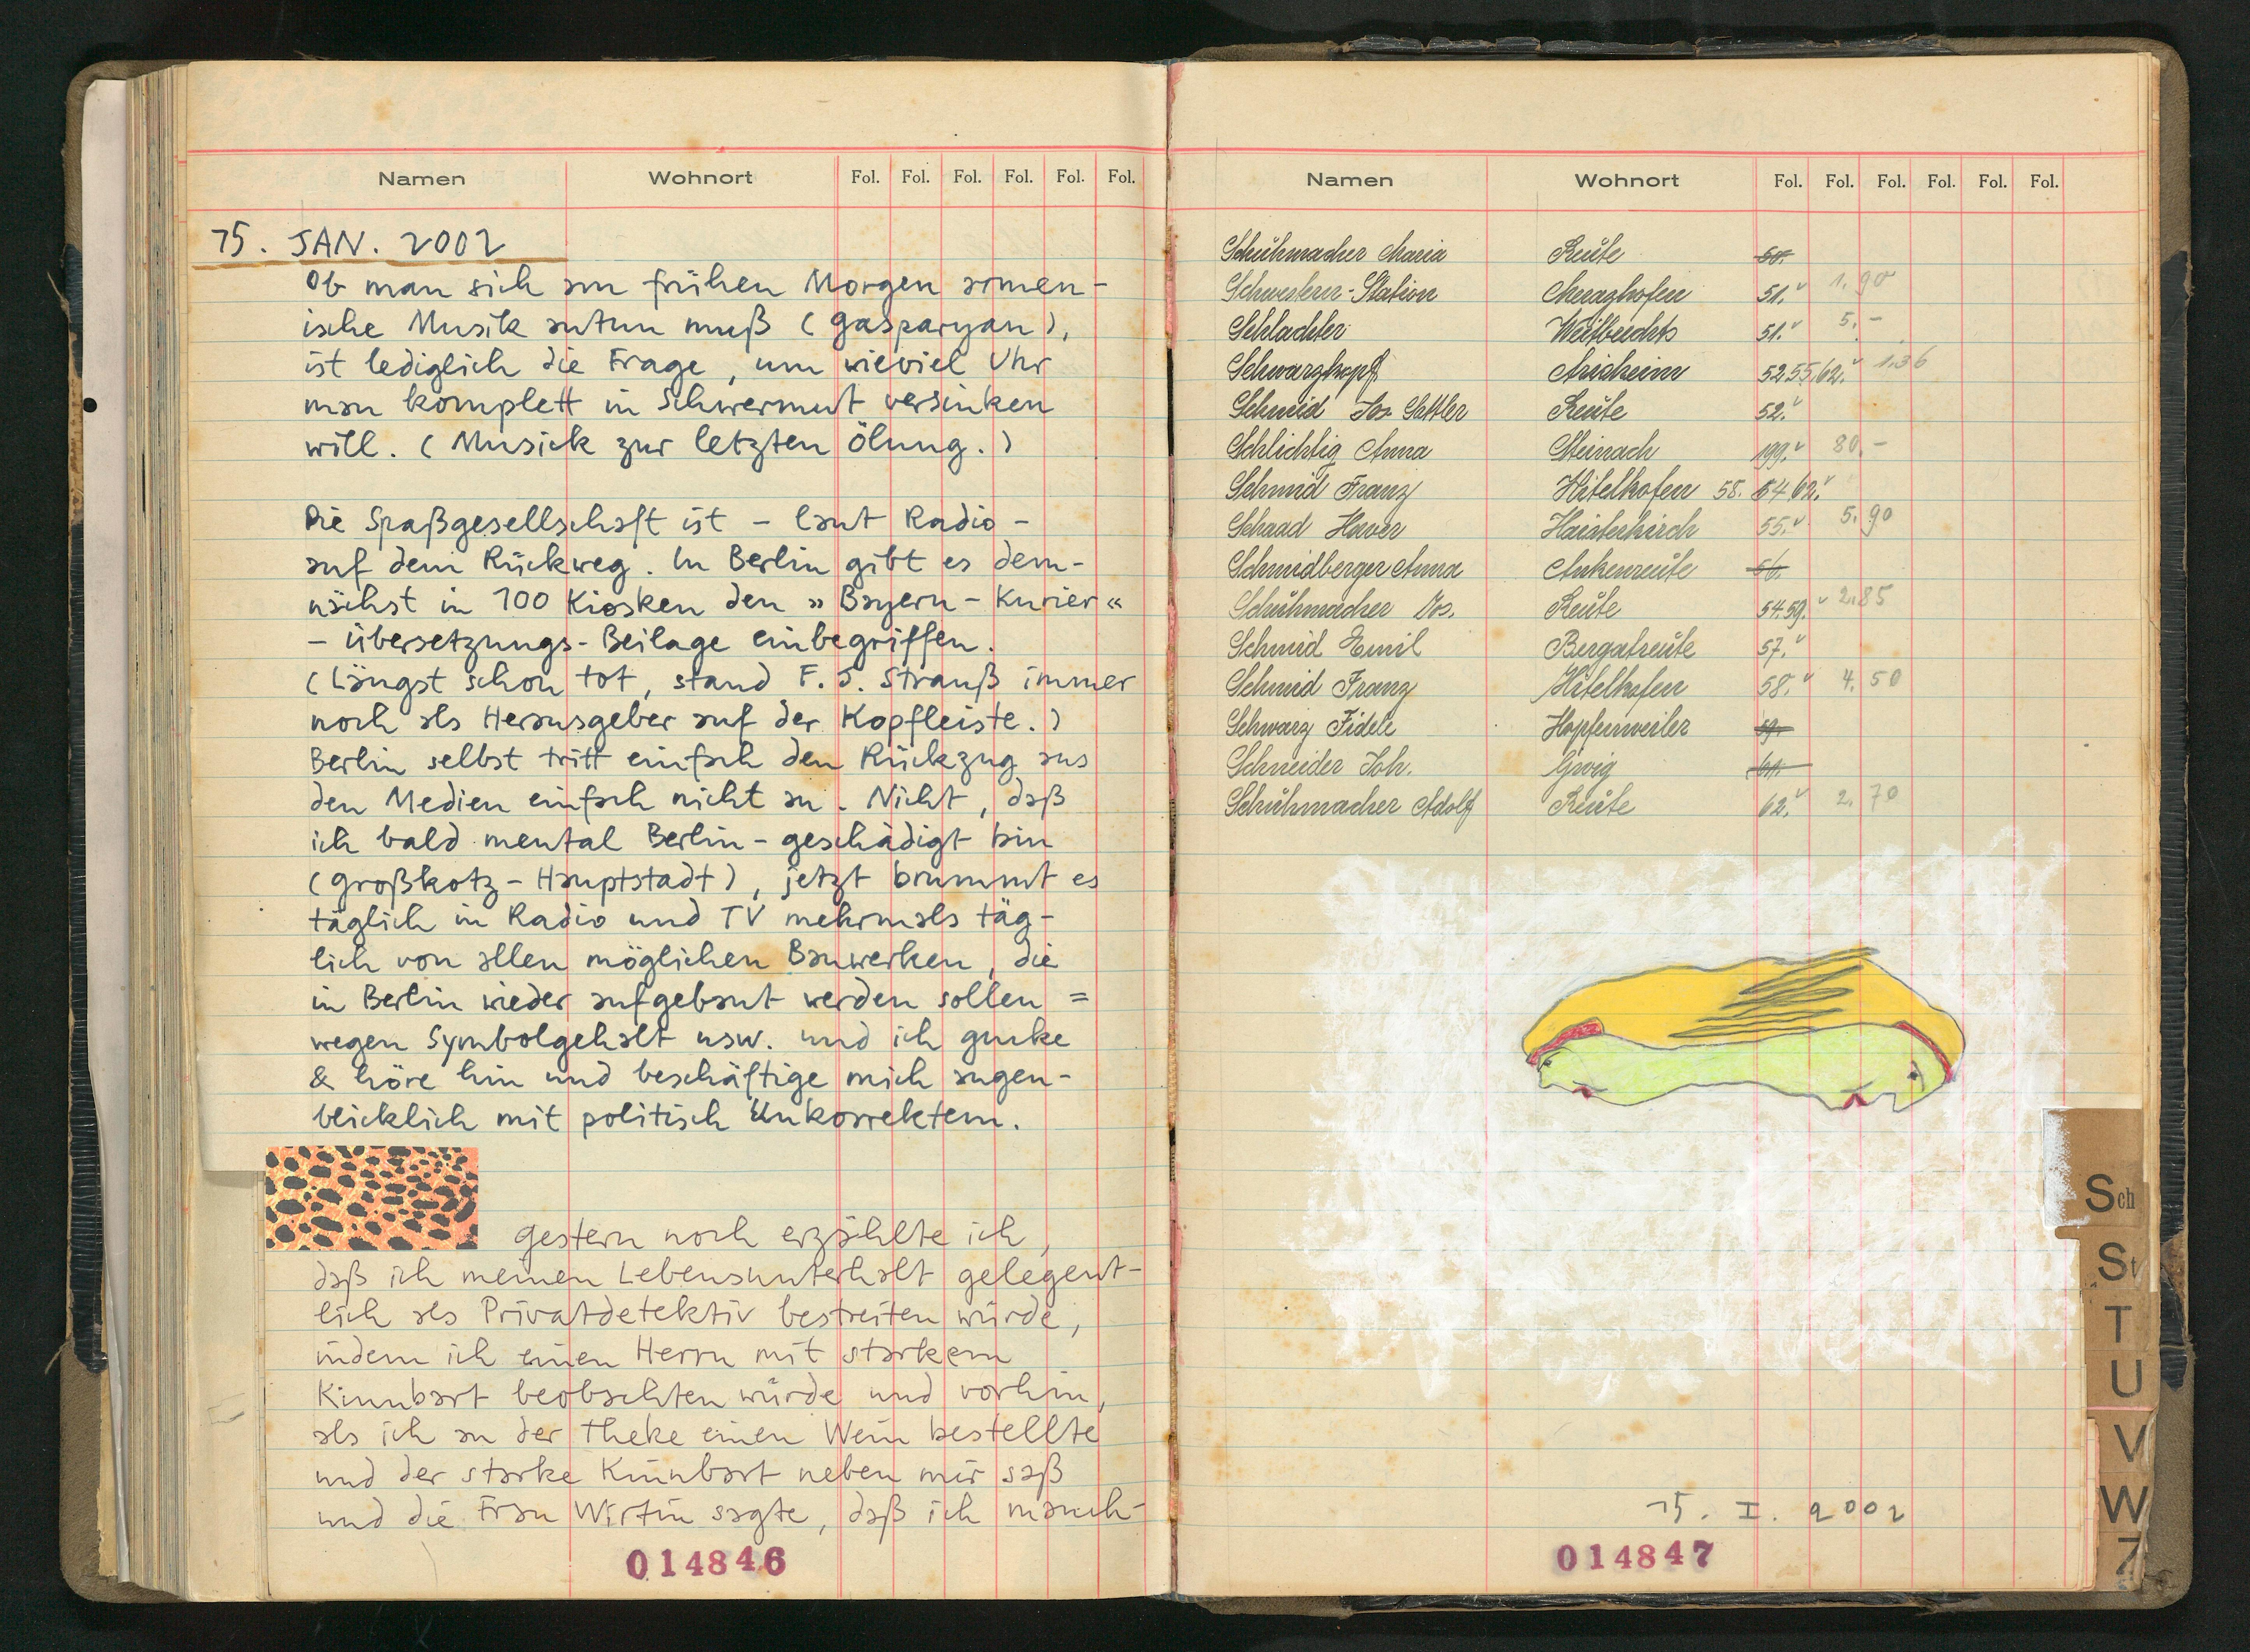 Namen Wohnort Fol. Fol. Fol. Fol. Fol. Fol.
15. JAN. 2002
Ob man sich am frühen Morgen armen-
ische Musik antun muß (Gasparyan),
ist lediglich die Frage, um wieviel Uhr
man komplett in Schwermut versinken
will. (Musick zur letzten Ölung.)
Die Spaßgesellschaft ist – laut Radio –
auf dem Rückweg. In Berlin gibt es dem-
nächst in 100 Kiosken den »Bayern-Kurier«
– Übersetzungs-Beilage einbegriffen.
(Längst schon tot, stand F. J. Strauß immer
noch als Herausgeber auf der Kopfleiste.)
Berlin selbst tritt einfach den Rückzug aus
den Medien einfach nicht an. Nicht, daß
ich bald mental Berlin-geschädigt bin
(Großkotz-Hauptstadt), jetzt brummt es
täglich in Radio und TV mehrmals täg-
lich von allen möglichen Bauwerken, die
in Berlin wieder aufgebaut werden sollen =
wegen Symbolgehalt usw. und ich gucke
& höre hin und beschäftige mich augen-
blicklich mit politisch Unkorrektem.
Gestern noch erzählte ich,
daß ich meinen Lebensunterhalt gelegent-
lich als Privatdetektiv bestreiten würde,
indem ich einen Herrn mit starkem
Kinnbart beobachten würde und vorhin,
als ich an der Theke einen Wein bestellte
und der starke Kinnbart neben mir saß
und die Frau Wirtin sagte, daß ich manch-
014846
Namen Wohnort Fol. Fol. Fol. Fol. Fol. Fol.
Schuhmacher Maria Reute 60.
Schwestern-Station 51. 1.90
Schlachter 51. 5.-
Schwarzkopf 52.55.62. 1.36
Schmid Jos. Sattler Reute 52.
Schlichtig Anna Steinach 199. 80.-
Schmid Franz Hitelkofen 58. 64.62.
Schaad Haisterkirch 55. 5.90
Schmidberger Anna Ankenreute 56.
Schuhmacher Jos. Reute 54.59. 2.85
Schmid Emil Bergatreute 57.
Schmid Franz Hitelkofen 58. 4.50
Schwarz Fidele Hopfenweiler 59.
Schneider Joh. 61.
Schuhmacher Adolf Reute 62. 2.70
Sch
St
T
U
V
W
Z
15. I. 2002
014847